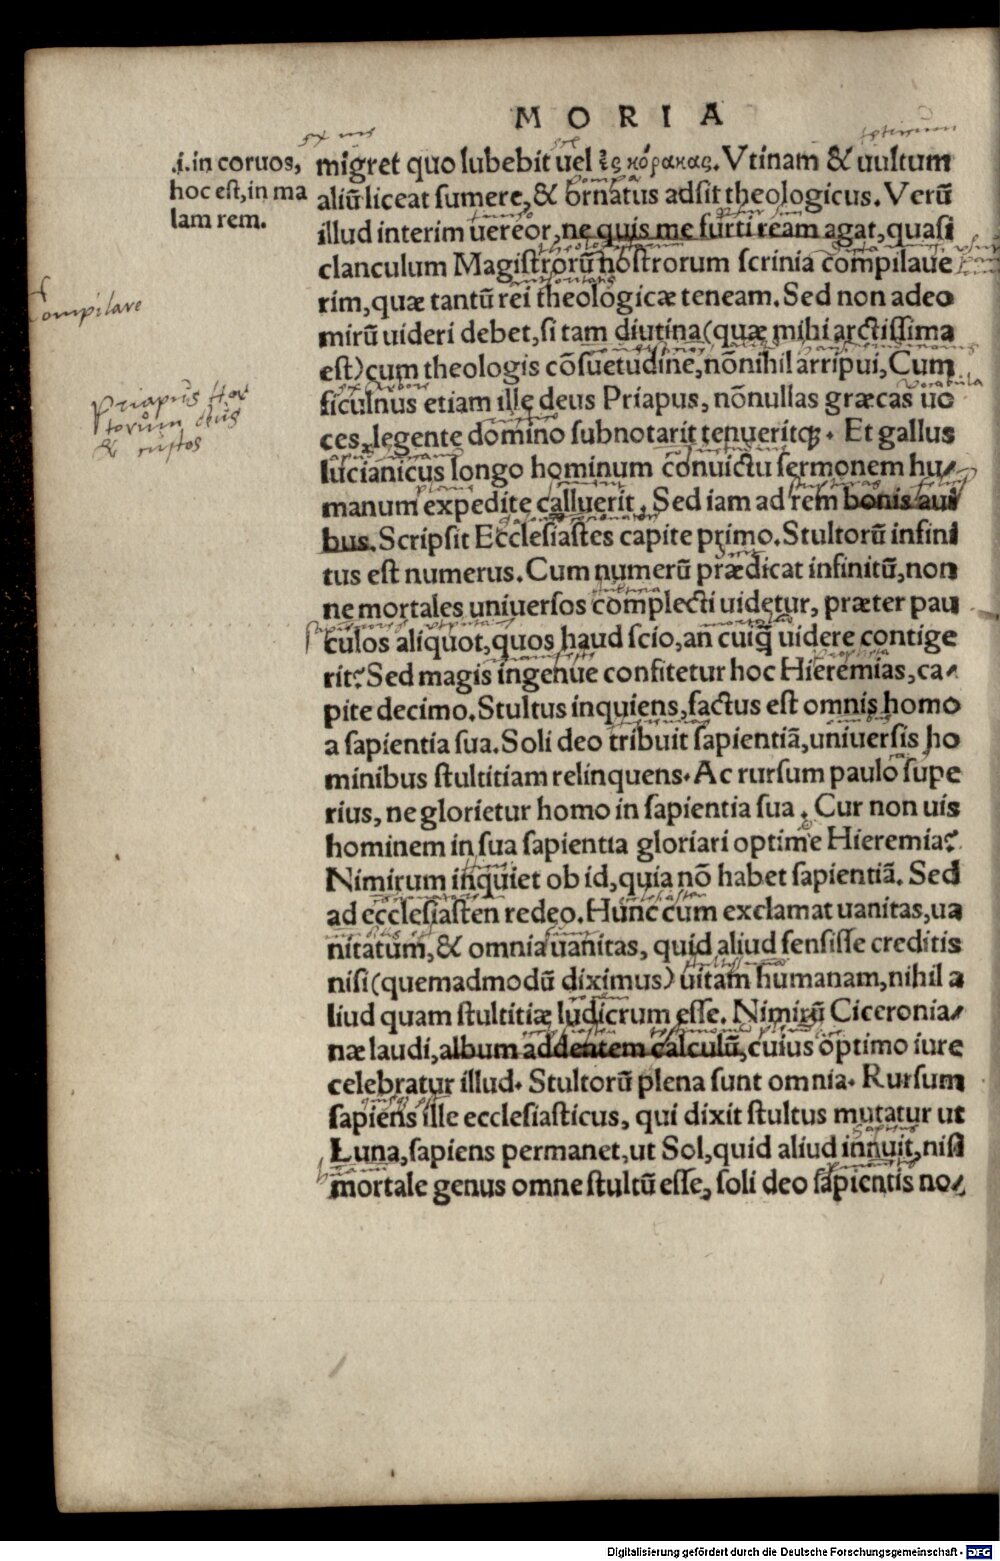 MORIA
.i. in coruos,
hoc est, in ma
lam rem.
migret quo lubebit uel ἐς κόρακας. Vtinam & uultum
aliũ liceat sumere, & ornatus adsit theologicus. Verũ
illud interim uereor, ne quis me furti ream agat, quasi
clanculum Magistrorũ nostrorum scrinia compilaue
rim, quæ tantũ rei theologicæ teneam. Sed non adeo
Compilare
mirũ uideri debet, si tam diutina (quæ mihi arctissima
est) cum theologis cõsuetudine, nõnihil arripui, Cum
ficulnus etiam ille deus Priapus, nõnullas græcas uo
Priapus Hor
torum deus
& custos
ces, legente domino subnotarit tenueritq;. Et gallus
lucianicus longo hominum conuictu sermonem hu-
manum expedite calluerit. Sed iam ad rem bonis aui
bus. Scripsit Ecclesiastes capite primo. Stultorũ infini
tus est numerus. Cum numerũ prædicat infinitũ, non
ne mortales uniuersos complecti uidetur, præter pau
culos aliquot, quos haud scio, an cuiq̃ uidere contige
rit? Sed magis ingenue confitetur hoc Hieremias, ca-
pite decimo. Stultus inquiens, factus est omnis homo
a sapientia sua. Soli deo tribuit sapientiã, uniuersis ho
minibus stultitiam relinquens. Ac rursum paulo supe
rius, ne glorietur homo in sapientia sua. Cur non uis
hominem in sua sapientia gloriari optime Hieremia?
Nimirum inquiet ob id, quia nõ habet sapientiã. Sed
ad ecclesiasten redeo. Hunc cum exclamat uanitas, ua
nitatum, & omnia uanitas, quid aliud sensisse creditis
nisi (quemadmodũ diximus) uitam humanam, nihil a
liud quam stultitiæ ludicrum esse. Nimirũ Ciceronia-
næ laudi, album addentem calculũ, cuius optimo iure
celebratur illud. Stultorũ plena sunt omnia. Rursum
sapiens ille ecclesiasticus, qui dixit stultus mutatur ut
Luna, sapiens permanet, ut Sol, quid aliud innuit, nisi
mortale genus omne stultũ esse, soli deo sapientis no-
Digitalisierung gefördert durch die Deutsche Forschungsgemeinschaft - DFG